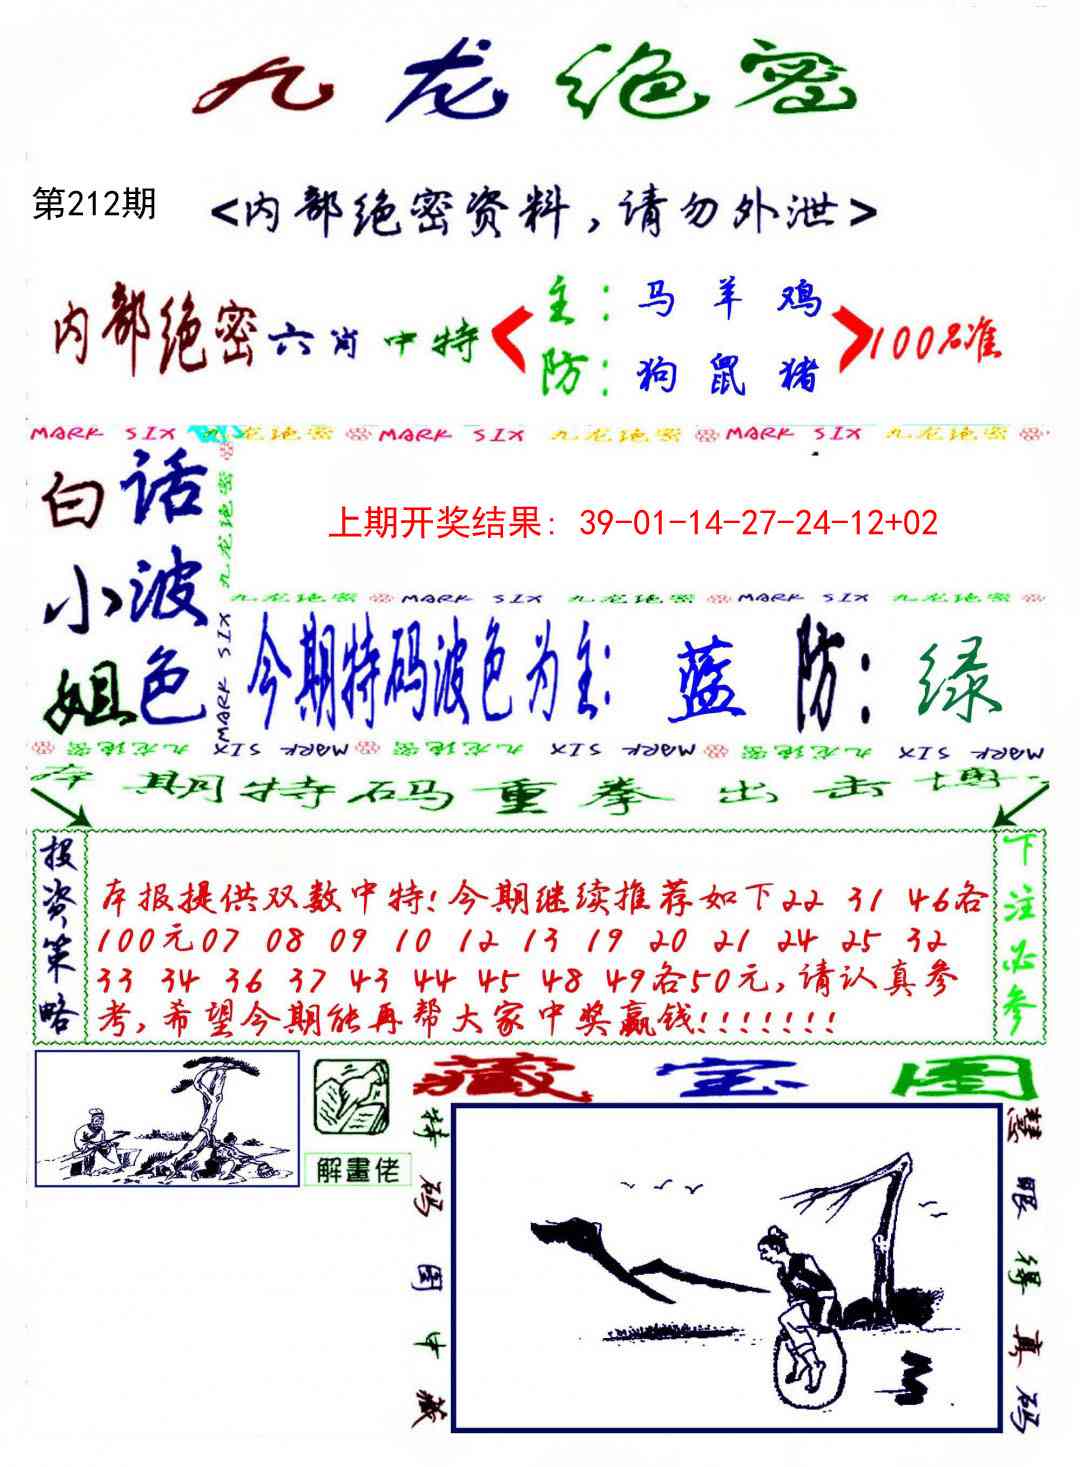 九龙绝密
第212期
<内部绝密资料,请勿外泄>
内部绝密六肖中特
主: 马 羊 鸡
防: 狗 鼠 猪
100%准
MARK SIX 九龙绝密 MARK SIX 九龙绝密 MARK SIX 九龙绝密
白话
小波
姐色
九龙绝密
MARK SIX
上期开奖结果: 39-01-14-27-24-12+02
九龙绝密 MARK SIX 九龙绝密 MARK SIX 九龙绝密
今期特码波色为主: 蓝 防: 绿
九龙绝密 MARK SIX 九龙绝密 MARK SIX 九龙绝密 MARK SIX
本期特码重拳出击博
投资策略
本报提供双数中特!今期继续推荐如下22 31 46各
100元07 08 09 10 12 13 19 20 21 24 25 32
33 34 36 37 43 44 45 48 49各50元,请认真参
考,希望今期能再帮大家中奖赢钱!!!!!!!
下注必参
解畫佬
藏宝图
特码图中藏
慧眼得真码